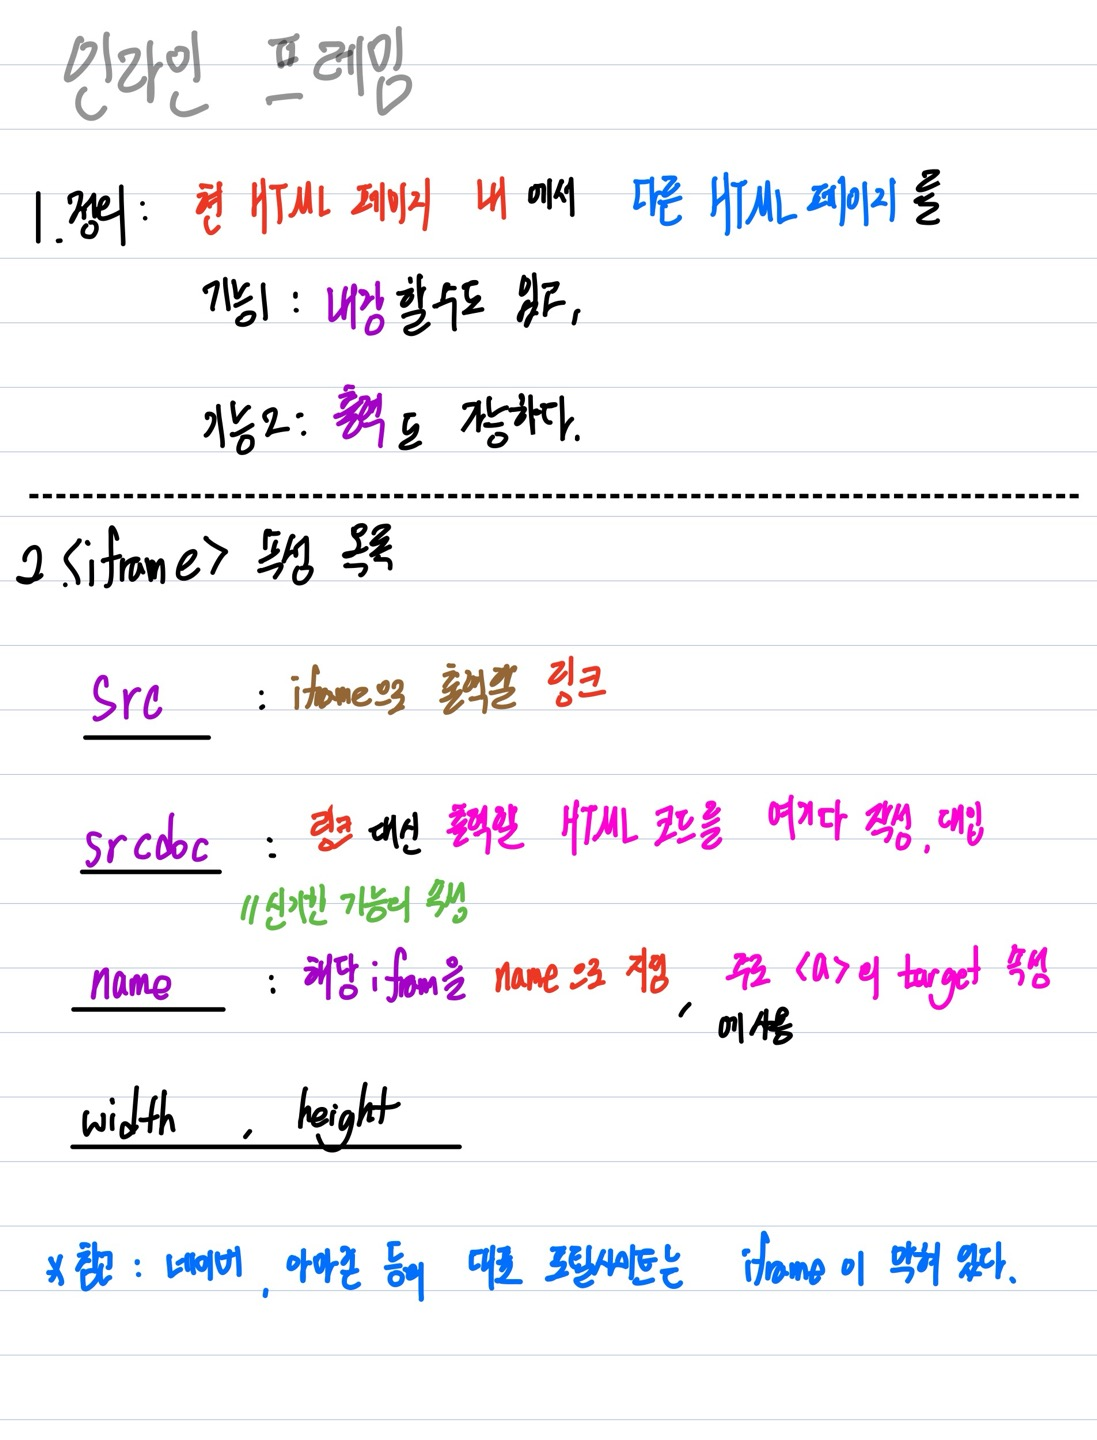 인라인 프레임
1. 정의 : 현 HTML 페이지 내 에서 다른 HTML 페이지를
기능1 : 내장 할 수도 있고,
기능2 : 출력도 가능하다.
2. <iframe> 속성 목록
src : iframe으로 출력할 링크
srcdoc : 링크 대신 출력할 HTML 코드를 여기다 작성, 대입
//신기한 기능의 속성
name : 해당 ifram을 name으로 지명, 주로 <a>의 target 속성
에 사용
width , height
* 참고 : 네이버, 아마존 등의 대표 포털사이트는 iframe이 막혀 있다.